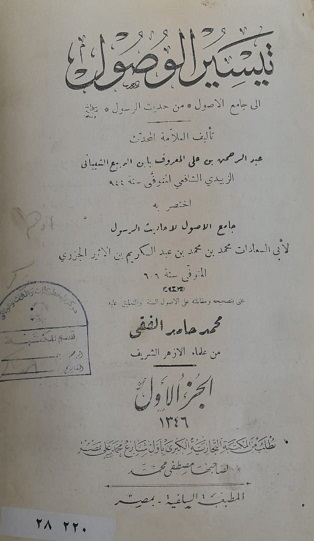 تيسير الوصول
الى جامع الاصول * من حديث الرسول * ﷺ
تأليف العلامة المحدث
عبد الرحمن بن علي المعروف بابن الربيع الشيباني
الزبيدي الشافعي المتوفى سنة ٩٤٤
اختصر به
جامع الاصول لاحاديث الرسول
لأبي السعادات محمد بن محمد بن عبد الكريم بن الاثير الجزري
المتوفى سنة ٦٠٦
عني بتصحيحه ومقابلته على الاصول الستة والتعليق عليه
محمد حامد الفقي
من علماء الازهر الشريف
الجزء الأول
١٣٤٦
تطلب من المكتبة التجارية الكبرى بأول شارع محمد علي بمصر
لصاحبها مصطفى محمد
المطبعة السلفية - بمصر
٢٨ ٢٢٠